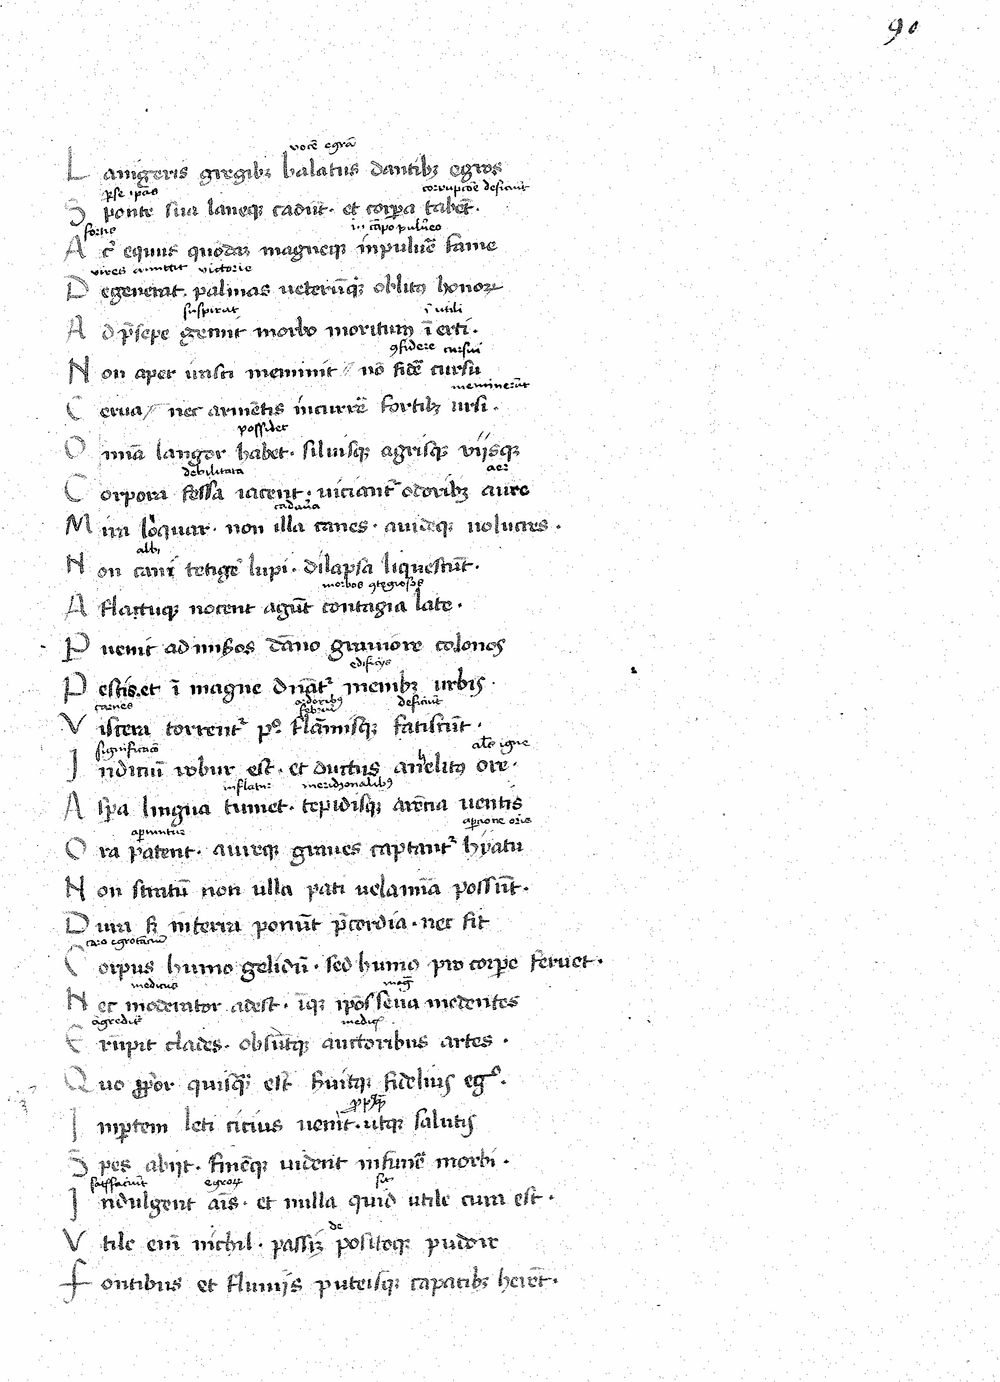 90
vocē egrā
Lanigeris gregibꝫ balatus dantibꝫ egros
ꝑ se ipās corrupcōe deficiūt
Sponte sua laneqꝫ cadūt · et corꝑa tabēt ·
fortis in cāpo puluẽo
Acˀ equus quōdaꝫ magneqꝫ in puluēˀ fame
vires amittit victorie
Degenerat · palmas ueterūqꝫ oblitꝯ honoꝝ
suspirat ī utili
Ad p̄sepe gemit morbo moriturꝰ ī erti ·
ꝯfidere cursui
Non aper irasci meminit // nō fidēˀ cursu
meminerūt
Cerua / nec armētis incurrēˀ fortibꝫ ursi ·
possidet
Omīa langor habet · siluisqꝫ agrisqꝫ viisqꝫ
debilitata aer
Corpora fessa iacent · uiciantˀ odoribꝫ aure
cadauīa
Mira loquar · non illa canes · auideqꝫ uolucres ·
albi
Non cani tetigēˀ lupi · dilapsa liquescūt ·
morbos ꝯtegiosos
Aflatuqꝫ nocent agūt contagia late ·
Puenit ad miẞos dāno grauiore colonos
edificijs
Pestis et ī magne dnātˀ menibꝫ urbis ·
carnes ardoribꝯ febriū deficiūt
Viscera torrentˀ pͦ flāmisqꝫ fatiscūt ·
significacō alˀo igne
Indiciū robur est · et ductus anhelitꝯ ore ·
inflatur meridionalibꝯ
Aspa lingua tumet · tepidisqꝫ arēcia uentis
aꝑiuntur aꝑcione oris
Ora patent · aureqꝫ graues captantˀ hyatu
Non stratū non ulla pati uelamīa possūt ·
Dura sꝫ in terra ponūt p̄cordia · nec fit
caro egrotanciū
Corpus humo gelidū · sed humꝯ pro corꝑe feruet ·
medicus mag̅
Nec moderator adest · īqꝫ ipōs seua medentes
agreditˀ medicˀ
Erūpit clades · obsūtqꝫ auctoribus artes ·
Quo ꝓpior quisqꝫ est ẞuitqꝫ fidelius egͦ ·
In ꝑtem leti citius uenit · utqꝫ salutis
Spes abijt · finēqꝫ uident in funēˀ morbi ·
satisfaciūt egroꝝ sit
Indulgent aīs · et nulla quid utile cura est ·
de
Vtile enī nichil · passiꝫ positoqꝫ pudore
Fontibus et flumijs puteisqꝫ capacibꝫ herēt ·